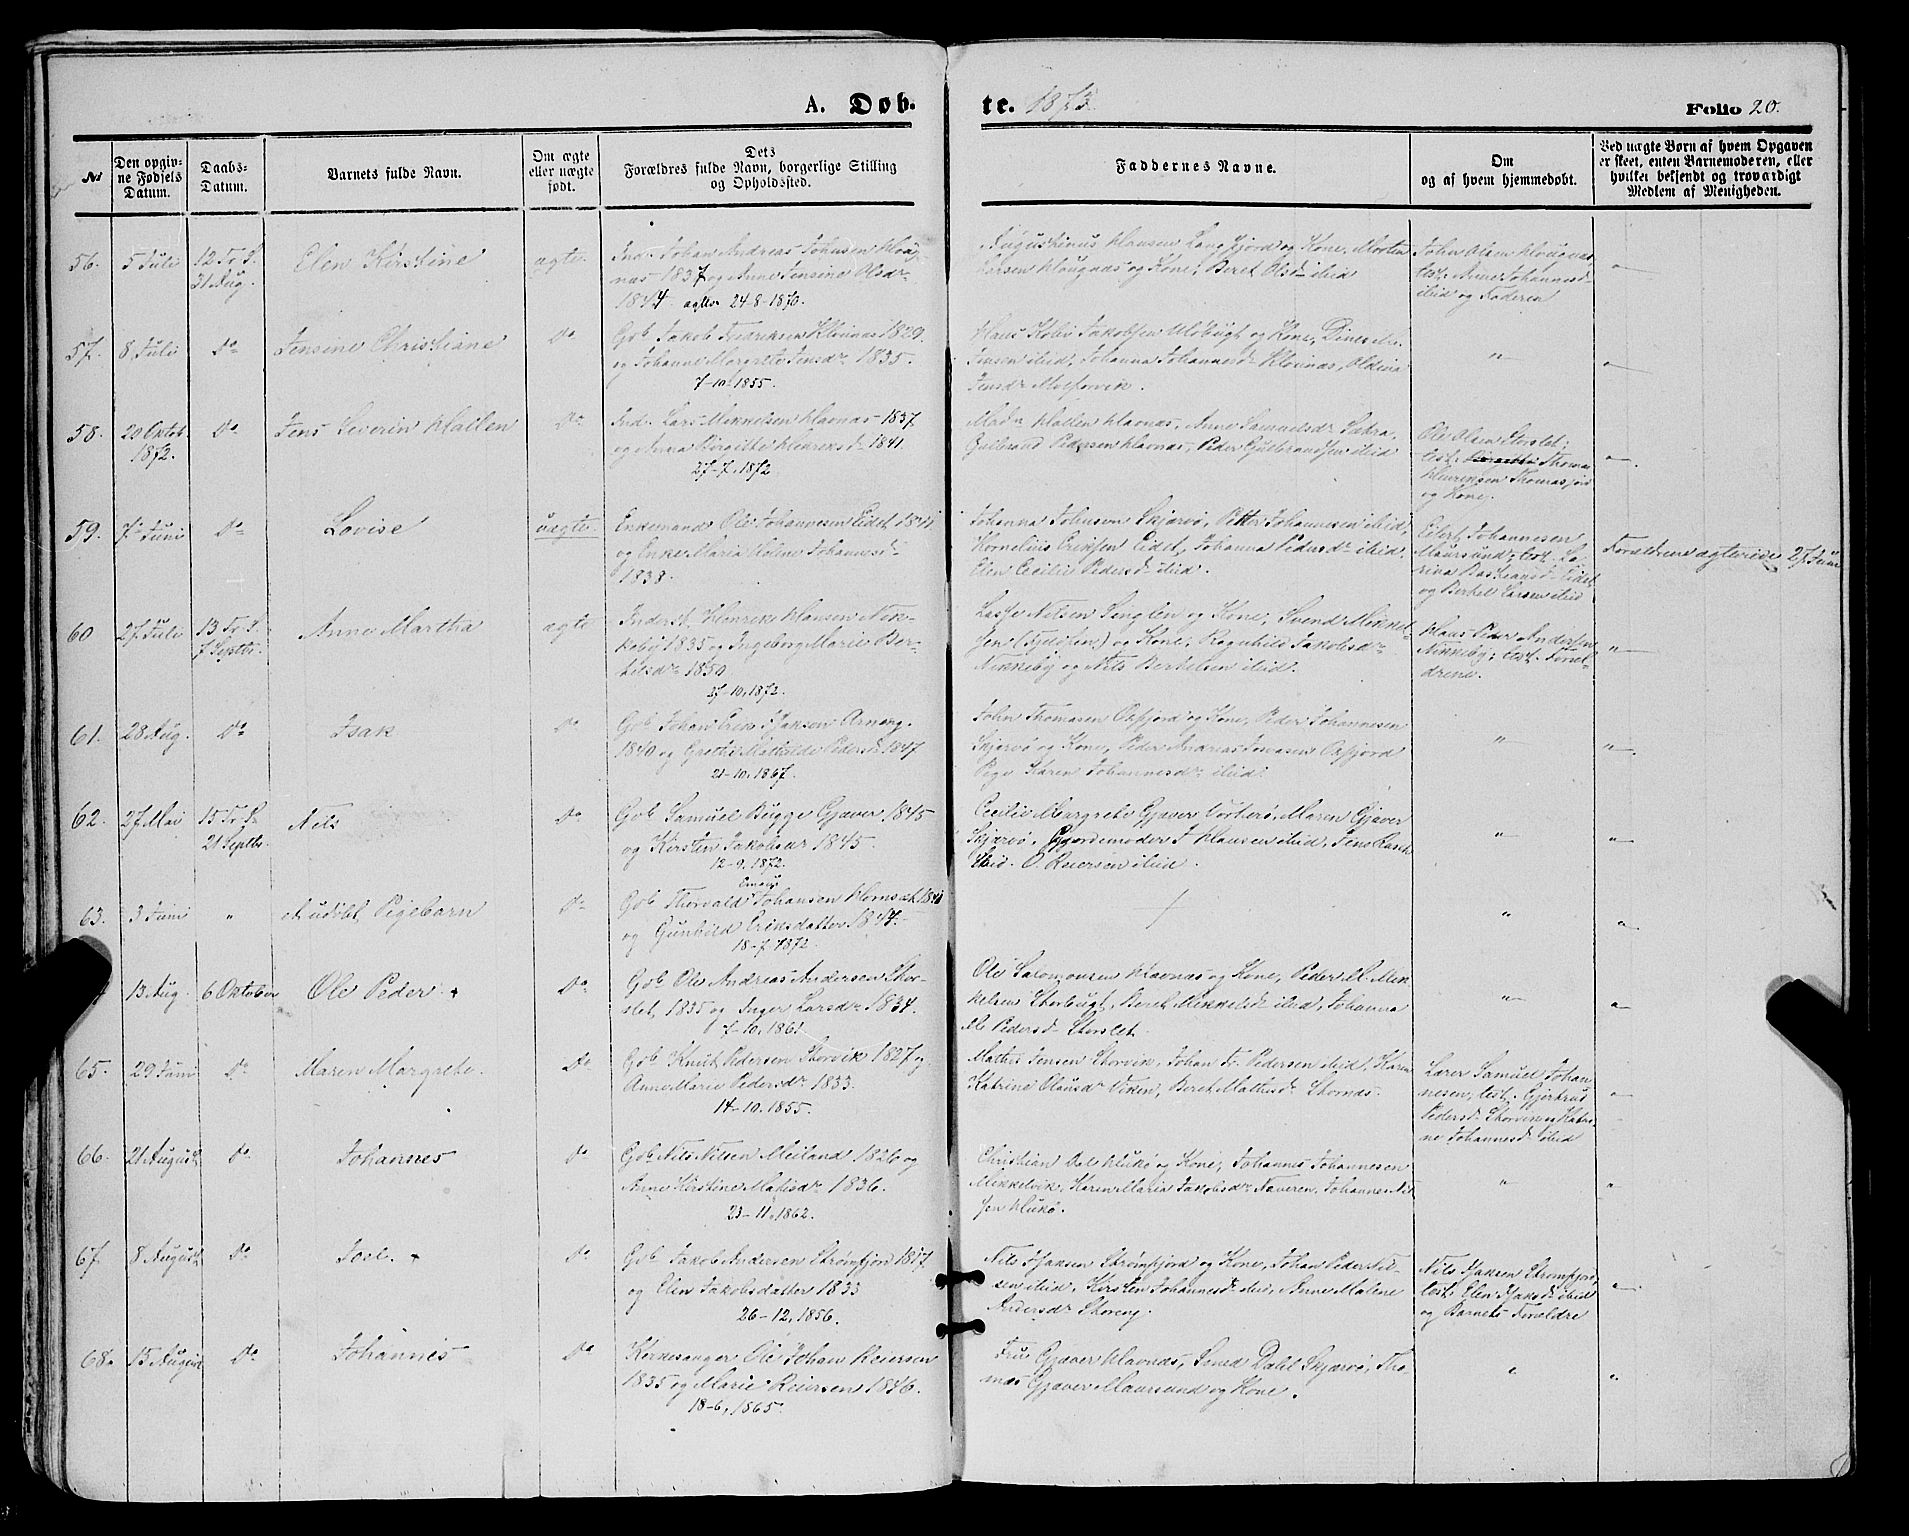 A. Døb-
te. 1873.
Folio 20.
No
Den opgiv-
ne Fødsels
Datum.
Daabs-
Datum.
Barnets fulde Navn.
Om ægte
eller uægte
født.
Dets
Forældres fulde Navn, borgerlige Stilling
og Opholdssted.
Faddernes Navne.
Om
og af hvem hjemmedøbt.
Ved uægte Børn af hvem Opgaven
er skeet, enten Barnemoderen, eller
hvilket bekjendt og troværdigt
Medlem af Menigheden.
56. 5 Juli
12 Tr. S.
31 Aug.
Elen Kirstine
ægte
Ind. Johan Andreas Johnsen
1837 og Anne Jensine Olsdr
1844 ægtev. 24-8-1870.
Augustinus Hansen Langfjord og Kone, Morten
Larsen og Kone, Beret Olsd ibid
John Olsen
test. Anne Johannesd
ibid og Faderen
"
57. 8 Juli
Do
Jensine Christiane
Do
Gb Jakob Fredriksen 1829
og Johanne Margrete Jensdr 1835.
7-10-1855.
Hans Jakobsen og Kone,
Jensen ibid, Johanna Johannesd
Jensdr
"
"
58. 20 Oktob.
1872.
Do
Jens Severin Hallen
Do
Ind. Lars Mikkelsen Havnas 1837
og Anna Birgitte Henriksd 1841.
27-7, 1872
Hallen Havnas, Anne Samuelsdr
Gulbrand Pedersen Havnas, Peder Gulbrandsen ibid
Ole Olsen Storslet;
test. Thomas
Henriksen
og Kone.
"
59. 7 Juni
Do
Lovise
uægte
Enkemand Ole Johannesen Eidet 1841
og Enke Maria Johannesd
1838.
Johanna Johnson Skjærvø, Petter Johannesen ibid,
Kornelius Eriksen Eidet, Johanna Pedersdr ibid,
Elen Cecilie Pedersd ibid.
Eilert Johannesen
Maursund; test.
Eidet
og Berthel Larsen ibid
Forældrene ægteviede 27 Juni
60 27 Juli
13 Tr. S.
7 Septbr.
Anne Martha
ægte
Inderst Henrik Hansen Nik-
keby 1835 og Ingeborg Marie Ber-
thelsdr 1850
27-10, 1872.
Lasse Nilsen og Kone, Svend Mikkel-
sen og Kone, Ragnhild Jakobsdr
Nikkeby og Nils Berthelsen ibid.
Hans Peder Andersen
Nikkeby; test. Foræl-
drene.
"
61. 28 Aug.
Do
Isak
Do
Gb Johan Erik Isaksen Arnøy.
1840 og Grethe Mathilde Pedersd 1847
21-10, 1867.
John Thomasen Oxfjord og Kone, Peder Johannesen
Skjærvø og Kone, Peder Andreas Oxfjord
Pige Karen Johannesdr ibid.
"
"
62. 27 Mai
15 Tr. S.
21 Septbr.
Nils
Do
Gb Samuel Bugge Gjæver 1845
og Kirsten Jakobsdr 1845.
12-9, 1872.
Cecilie Margrete Gjæver Vorterø, Maren Gjæver
Skjærvø, Gjordemoder J Hansen ibid, Jens Rasch
ibid. O. Reiersen ibid.
"
"
63. 3 Juni
"
udøbt Pigebarn
Do
Gb Thorvald Johansen 1840
og Gunhild Eriksdatter 1844.
18-7 1872.
"
"
13 Aug.
6 Oktober
Ole Peder
Do
Gb Ole Andreas Andersen Stor-
slet, 1835 og Inger Larsdr 1834.
7-10, 1861
Ole Salomonsen Havnas og Kone, Peder M. Mik-
kelsen Storbugt, Beret Mikkelsd ibid, Johanna
M. Pedersd Storslet.
"
"
65. 29 Juni
Do
Maren Margrete.
Do
Gb Knut Pedersen Storvik 1827 og
Anne Marie Pedersdr 1833.
14-10. 1855.
Mathis Jensen Storvik, Johan Fr. Pedersen ibid, Karen
Katrine Olausdr Viken, Beret Mathisd Stornæs.
Lærer Samuel Johan-
nesen, test. Gjertrud
Pedersd Storvik og Katri-
ne Johannesd ibid
"
66. 21 August
Do
Johannes
Do
Gb Nils Nilsen Meiland 1826 og
Anne Kirstine Matisdr 1836.
23-11, 1862.
Christian Dal Hukø og Kone, Johannes Johannesen
Mikkelvik, Karen Maria Jakobsdr Naveren, Johannes Nil-
sen Hukø.
"
"
67. 8 August
Do
Joel.
Do
Gb Jakob Andersen Strømfjord 1817.
og Elen Jakobsdatter 1833
26-12, 1856.
Nils Isaksen Strømfjord og Kone, Johan Peder Nil-
sen ibid, Kirsten Johannesd ibid, Anne Malene
Andersdr Storeng.
Nils Isaksen Strømfjord,
test. Elen Isaksd ibid
og Barnets Forældre
"
68. 15 August
Do
Johannes
Do
Kirkesanger Ole Johan Reiersen
1835 og Marie Reiersen 1846.
18-6, 1865.
Fru Gjæver Havnæs, Smed Dahl Skjærvø, Tho-
mas Gjæver Maursund og Kone.
"
"